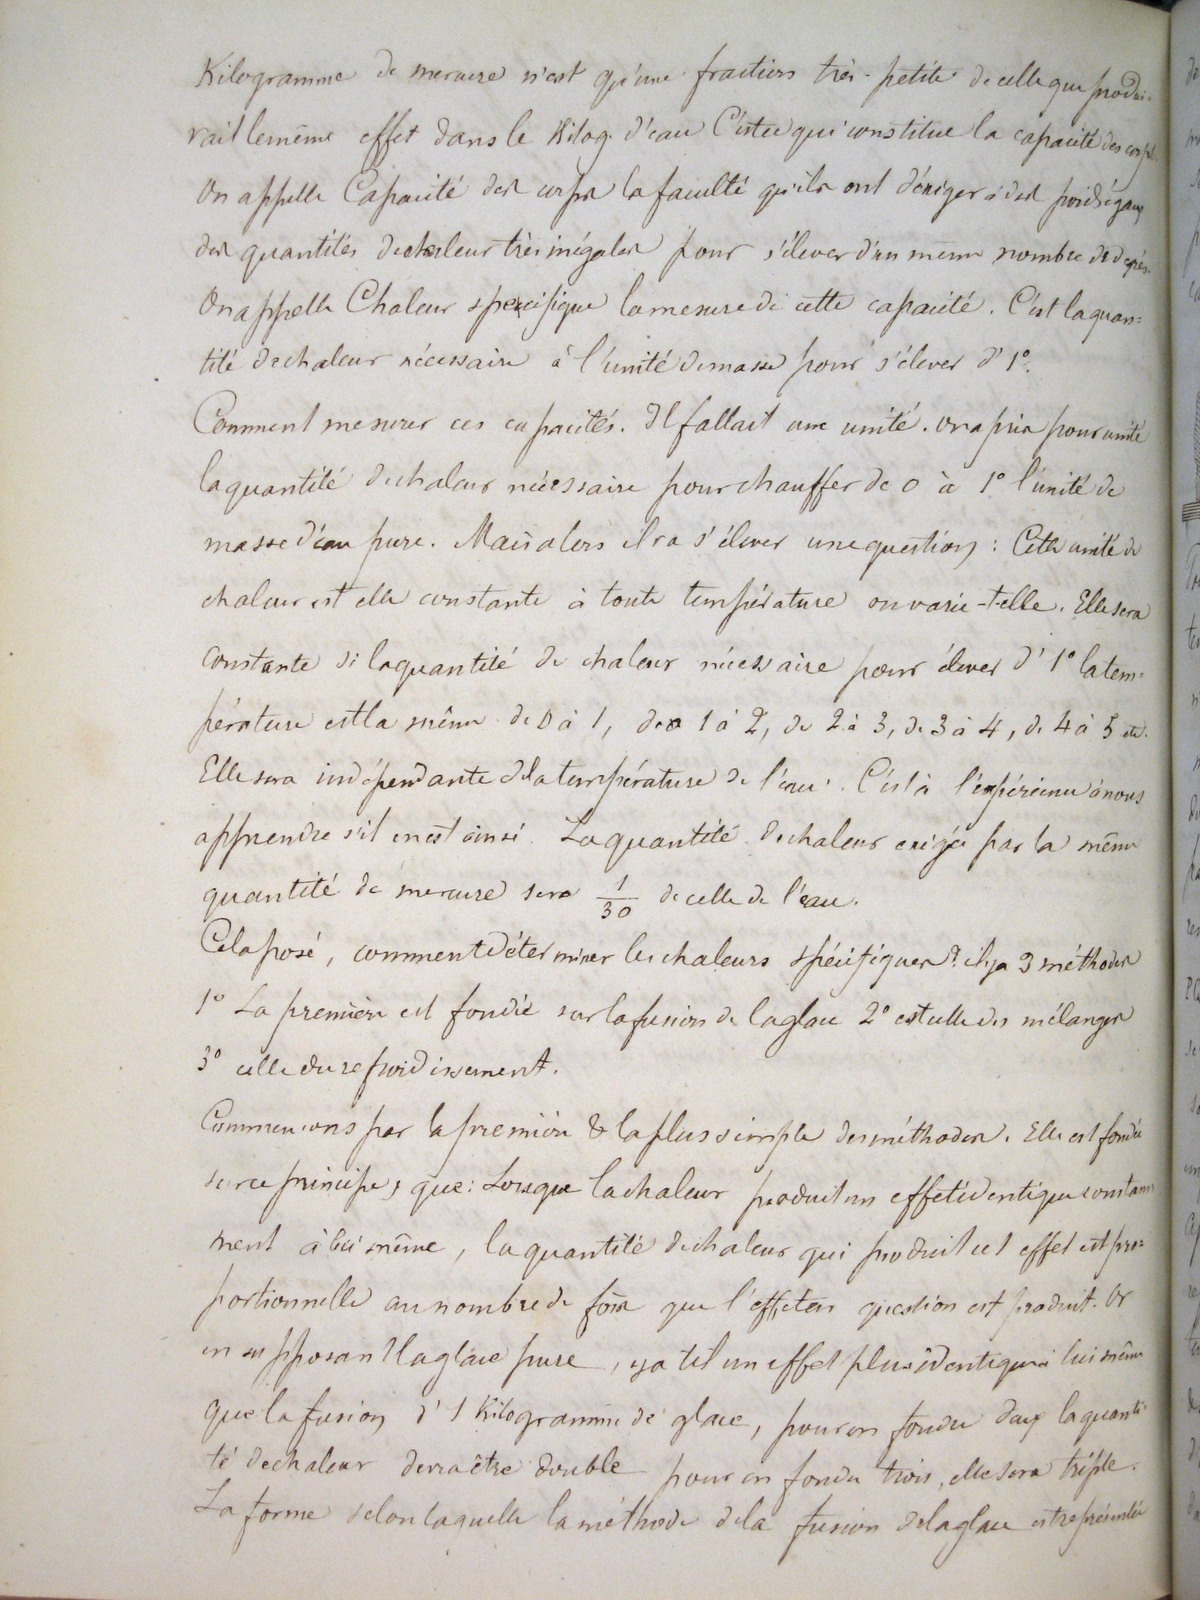 Kilogramme de mercure n'est qu'une fraction très-petite de celle que produi-
rait le même effet dans le Kilog. d'eau C'est ce qui constitue la capacité des corps.
On appelle Capacité des corps la faculté qu'ils ont d'exiger à des poids égaux
des quantités de chaleur très inégales pour s'élever d'un même nombre de degrés.
On appelle Chaleur spécifique la mesure de cette capacité. C'est la quan=
tité de chaleur nécessaire à l'unité de masse pour s'élever d'1°.
Comment mesurer ces capacités. Il fallait une unité. on a pris pour unité
la quantité de chaleur nécessaire pour chauffer de 0 à 1° l'unité de
masse d'eau pure. Mais alors il va s'élever une question : Cette unité de
chaleur est elle constante à toute température ou varie-t-elle. Elle sera
constante si la quantité de chaleur nécessaire pour élever d'1° la tem-
pérature est la même de 0 à 1, de 1 à 2, de 2 à 3, de 3 à 4, de 4 à 5 etc.
Elle sera indépendante de la température de l'eau. C'est à l'expérience à nous
apprendre s'il en est ainsi. La quantité de chaleur exigée par la même
quantité de mercure sera 1/30 de celle de l'eau.
Cela posé, comment déterminer les chaleurs spécifiques ? il y a 3 méthodes
1° La première est fondée sur la fusion de la glace 2° est celle des mélanges
3° celle du refroidissement.
Commencons par la première & la plus simple des méthodes. Elle est fondée
sur ce principe, que : Lorsque la chaleur produit un effet identique constam
ment à lui même, la quantité de chaleur qui produit cet effet est pro=
portionnelle au nombre de fois que l'effet en question est produit. Or
en supposant la glace pure, y a til un effet plus identique à lui même
que la fusion d'1 Kilogramme de glace, pour en fondre deux la quanti
té de chaleur devra être double pour en fondre trois, elle sera triple.
La forme selon laquelle la méthode de la fusion de la glace est représentée